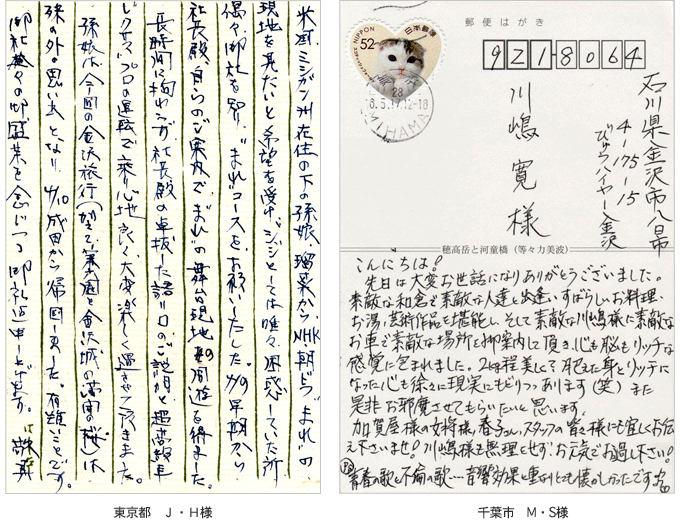 米国ミシガン州在住の下の孫娘 瑠菜から、NHK朝ドラ"まれ"の
現地を見たいと希望を受け、ジジとしては唯々困惑していた所
偶々御社を知り、"まれ"コースをお願いいたした。4/9早朝から
社長殿自らのご案内で、"まれ"の舞台現地周遊を得ました。
長時間に拘わらず社長殿の卓抜した語り口のご説明と超高級車
レクサス、プロの運転で乗り心地良く大変楽しく過させて頂きました。
孫娘は今回の金沢旅行(兼六園と金沢城の満開の桜)は
殊の外の思い出となり 4/10成田から帰国しました。有難いことです。
御社益々の御盛業を念じつつ御礼迄申し上げます。 敬具
東京都 J・H様
郵便はがき
NIPPON 52 日本郵便
28
8.5.17 12-18
MIHAMA
921-8064
石川県金沢市八日市
4-175-15
びゅうハイヤー金沢
川嶋 寛 様
穂高岳と河童橋(等々力美波)
こんにちは!
先日は大変お世話になりありがとうございました。
素敵な和倉で素敵な人達と出逢い、すばらしいお料理・
お湯、芸術作品を堪能し、そして素敵な川嶋様に素敵な
お車で素敵な場所を御案内して頂き、心も脳もリッチな
感覚に包まれました。2㎏程美しくて肥えた身とリッチに
なった心も徐々に現実にもどりつつあります(笑) また
是非お邪魔させてもらいたいと思います。
加賀屋様の女将様、春子さん、スタッフの皆々様にも宜しくお伝
え下さいませ! 川嶋様も無理をせず、お元気でお過し下さい!
PS 青春の歌と不倫の歌…音響効果と重なりとても懐かしかったです
千葉市 M・S様